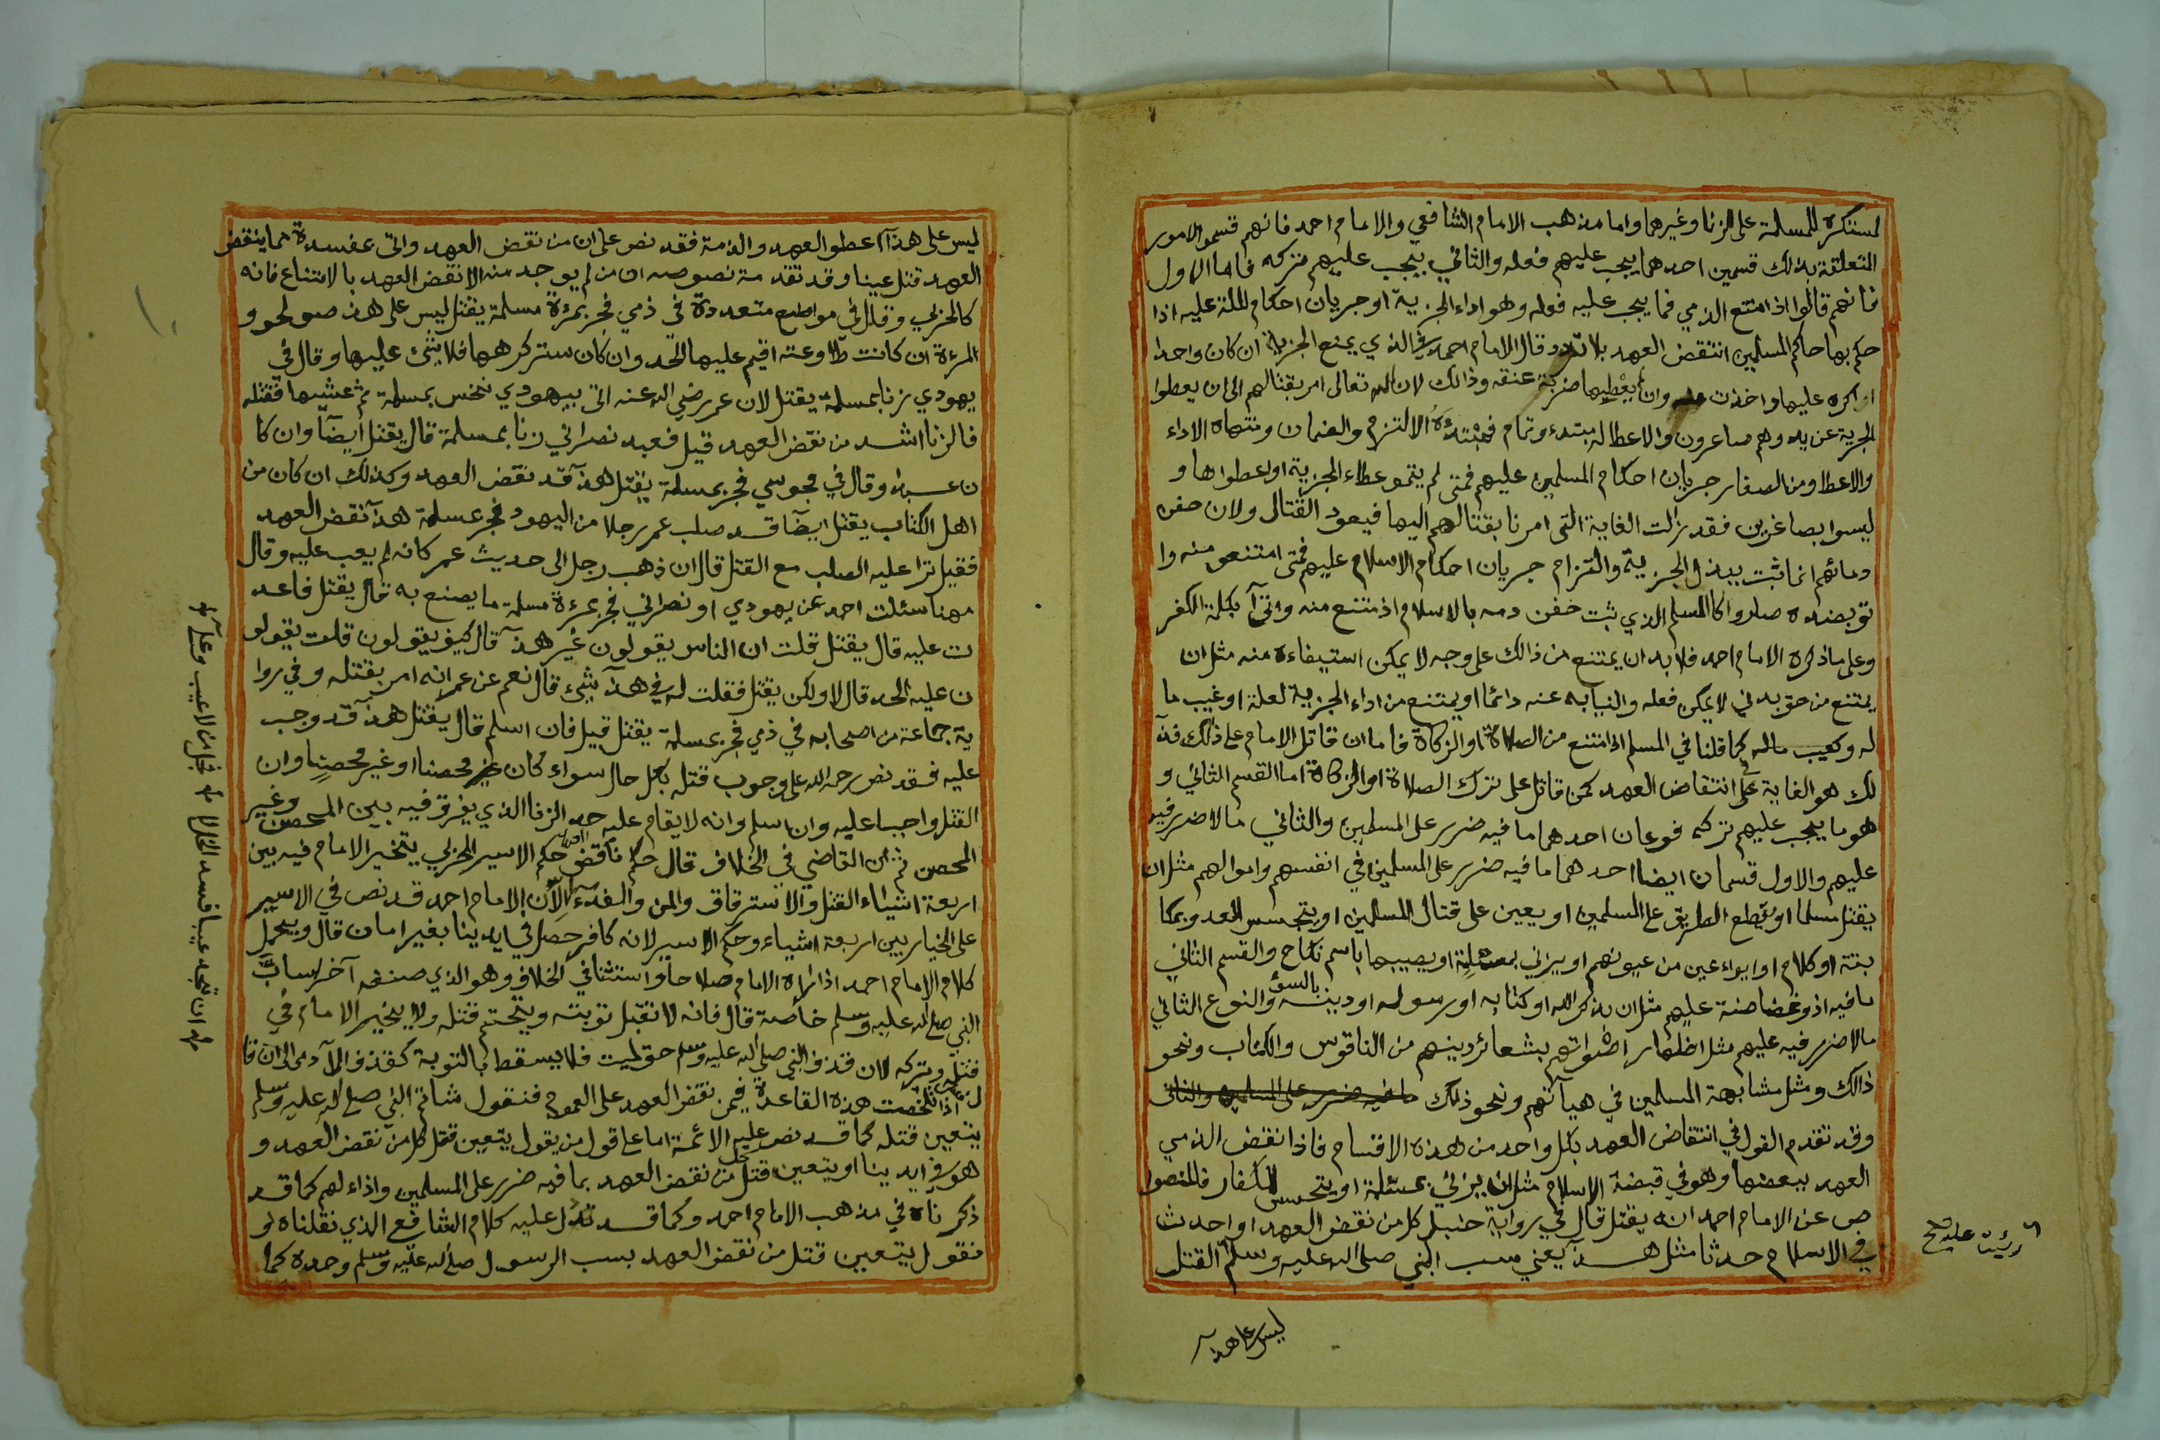 لمستنكرة للمسلمة على الزنا وغيرهما واما مذهب الامام الشافعي والامام احمد فانهم قسموا الامور
المتعلقة بذلك قسمين احدهما يجب عليهم فعله والثاني يجب عليهم تركه فاما الاول
فانهم قالوا اذا امتنع الذمي فما يجب عليه فعله وهو اداء الجزية او جريان احكام الملة عليه اذا
حكم بها حاكم المسلمين انتقض العهد بلا تردد وقال الامام احمد في الذي يمنع الجزية ان كان واحدا
اواكره عليها واخذت منه وان لم يعطيها ضربة عنقه وذالك لان الله تعالى امر بقتالهم الى ان يعطوا
الجزية عن يد وهم صاغرون والاعطا له مبتدء وتمام فمبتدءة الالتزم والضمان ومنتهاه الاداء
والاعطا ومن الصغار جريان احكام المسلمين عليهم فمتى لم يتمو عطاء الجزية او اعطوها و
ليسوا بصاغرين فقد زالت الغاية التي امرنا بقتالهم اليها فيعود القتال ولان حقن
دمائهم انما ثبت ببذل الجزية والتزام جريان احكام الاسلام عليهم فمتى امتنعو منه وا
تو بضده صاروا كالمسلم الذي ثبت حقن دمه بالاسلام اذ متنع منه واتى بكلمة الكفر
وعلى ماذكره الامام احمد فلا بد ان يمتنع من ذالك على وجه لا يمكن استيفاءه منه مثل ان
يمتنع من حق بدني لا يمكن فعله والنيابه عنه دائما او يمتنع من اداء الجزية لعلة او غيب ما
له وكعيب ماله كما قلنا في المسلم اذا امتنع من الصلاة او الزكاة فاما ان قاتل الامام على ذالك فذ
لك هو الغاية في انتقاض العهد كمن قاتل على ترك الصلاة او الزكاة اما القسم الثاني و
هو ما يجب عليهم تركه فوعان احدهما ما فيه ضرر على المسلمين والثاني ما لا ضرر فيه
عليهم والاول قسمان ايضا احدهما ما فيه ضرر على المسلمين في انفسهم واموالهم مثل ان
يقتل مسلما او يقطع الطريق على المسلمين او يعين على قتال المسلمين او يتجسس للعدو بمكا
بتة او كلام او ايواء عين من عيونهم او يزني بمسلمة او يصيبها باسم نكاح والقسم الثاني
مافيه اذ وغضاضة عليهم مثل ان يذكر الله او كتابه او رسوله او دينه بالسوء والنوع الثاني
مالا ضرر فيه عليهم مثل اظهار اصواتهم بشعائر دينهم من الناقوس والكتاب ونحو
ذالك ومثل مشابهة المسلمين في هيآتهم ونحو ذلك ما فيه ضرر على المسلمين والثاني
وقد تقدم القول في انتقاض العهد بكل واحد من هذه الاقسام فاذا نقض الذمي
العهد ببعضها وهو في قبضة الاسلام مثل ان يزني بمسلمة او يتجسس للكفار فالمنصو
ص عن الامام احمد انه يقتل قال في رواية حنبل كل من نقض العهد او احدث
في الاسلام حدثا مثل هذا يعني سب النبي صلى الله عليه وسلم القتل
رئيت عليه
ليس على هذا
ليس على هذا اعطو العهد والذمة فقد نص على ان من نقض العهد واتى بمفسدة مما ينقض
العهد قتل عينا وقد تقدمة نصوصه ان من لم يوجد منه الا نقض العهد بالامتناع فانه
كالحربي وقال في مواضع متعددة في ذمي فجر بمرءة مسلمة يقتل ليس على هذ صولحو و
المرءة ان كانت طاوعته اقيم عليها الحد وان كان ستركرهها فلا شئ عليها وقال في
يهودي زنا بمسلمة يقتل لان عمر رضي الله عنه اتى بيهودي نخس بمسلمة ثم غشيها فقتله
فالزنا اشد من نقض العهد قيل فعبد نصراني زنا بمسلمة قال يقتل ايضا وان كا
ن عبدا وقال في مجوسي فجر بمسلمة يقتل هذا قد نقض العهد وكذلك ان كان من
اهل الكتاب يقتل ايضا قد صلب عمر رجلا من اليهود فجر بمسلمة هذا نقض العهد
فقيل ترا عليه الصلب مع القتل قال ان ذهب رجل الى حديث عمر كانه لم يعب عليه وقال
مهنا سئلت احمد عن يهودي او نصراني فجر بمرءة مسلمة ما يصنع به قال يقتل فاعد
ت عليه قال يقتل قلت ان الناس يقولون غير هذا قال كيف يقولون قلت يقولو
ن عليه الحد قال لا ولكن يقتل فقلت له في هذا شئ قال نعم عن عمر انه امر بقتله وفي روا
ية جماعة من اصحابه في ذمي فجر بمسلمة يقتل قيل فان اسلم قال يقتل هذا قد وجب
عليه فقد نص رحمه الله على وجوب قتله بكل حال سواء كان محصنا او غير محصن وان
القتل واجب عليه وان اسلم وانه لا يقام عليه حد الزنا الذي يفرق فيه بين المحصن وغير
المحصن ثم ان القاضي في الخلاف قال حكم ناقض العهد حكم الاسير الحربي يتخير الامام فيه بين
اربعة اشياء القتل والاسترقاق والمن والفداء لان الامام احمد قد نص في الاسير
على الخيار بين اربعة اشياء وحكم الاسير لانه كافر حصل في ايدينا بغير امان قال ويحمل
كلام الامام احمد اذا رأه الامام صلاحا واستثنا في الخلاف وهو الذي صنفه آخر ساب
النبي صلى الله عليه وسلم خاصة قال فانه لا تقبل توبته ويتحتم قتله ولا يخير الامام في
قتله وتركه لان قذف النبي صلى الله عليه وسلم حق لميت فلا يسقط بالتوبة كقذف الآدمي الى ان قا
ل اذا تلخصت هذه القاعدة فيمن نقض العهد على العموم فنقول شاتم النبي صلى الله عليه وسلم
يتعين قتله كما قد نص عليه الائمة اما على قول من يقول يتعين قتل كل من نقض العهد و
هو في ايدينا او يتعين قتل كل من نقض العهد بما فيه ضرر على المسلمين واذاء لهم كما قد
ذكرناه في مذهب الامام احمد وكما قد تدل عليه كلام الشافع الذي نقلناه او
نقول يتعين قتل من نقض العهد بسب الرسول صلى الله عليه وسلم وحده كما
ان تجد عيبا فسد الخللا فجل من لا عيب وعلا